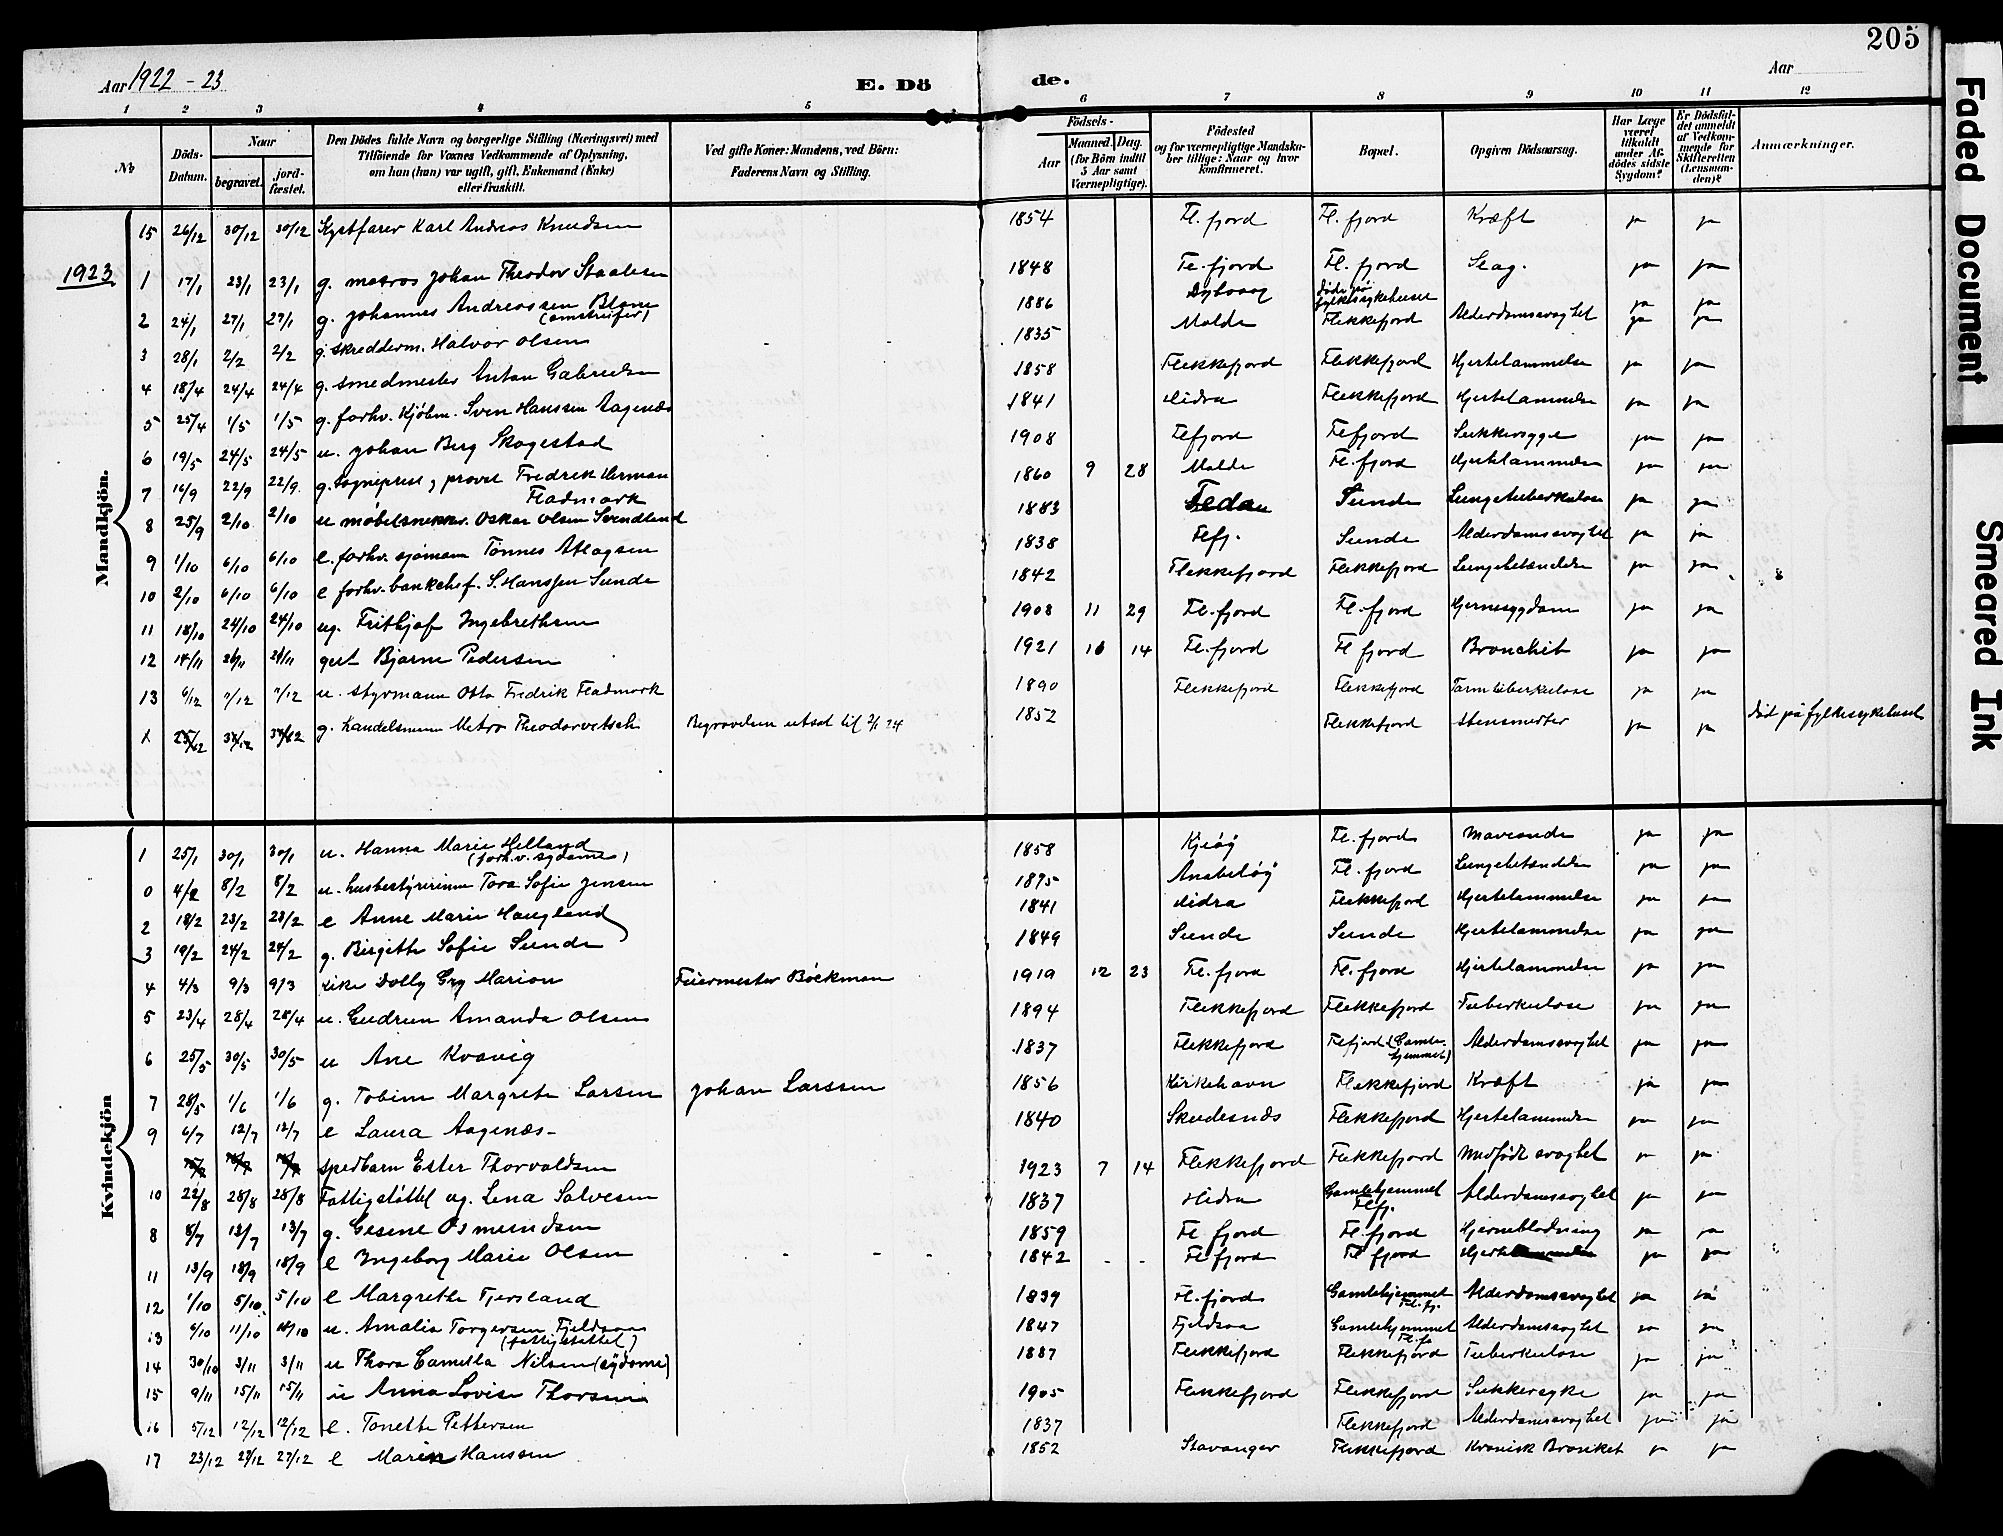 205
Aar 1922 - 23
E. Dö
de.
Aar
1 2 3 4 5 6 7 8 9 10 11 12
No
Döds-Datum.
Naar
begravet.
jord-fæstet.
Den Dödes fulde Navn og borgerlige Stilling (Næringsvei) med
Tilföiende for Voxnes Vedkommende af Oplysning,
om hun (han) var ugift, gift, Enkemand (Enke)
eller fraskilt.
Ved gifte Koner: Mandens, ved Börn:
Faderens Navn og Stilling.
Födsels-
Aar
Maaned. Dag.
(for Börn indtil
5 Aar samt
Værnepligtige).
Födested
og for værnepligtige Mandska-
ber tillige: Naar og hvor
konfirmeret.
Bopæl.
Opgiven Dödsaarsag.
Har Læge
været
tilkaldt
under Af-
dödes sidste
Sygdom?
Er Dödsfal-
det anmeldt
af Vedkom-
mende for
Skifteretten
(Lensman-
den)?
Anmærkninger.
Mandkjön.
15 26/12 30/12 30/12 Karl Andreas Knudsen 1854 Fl. fjord Fl. fjord Kræft ja ja
1923
1 17/1 23/1 23/1 g. matros Johan Theodor Staalesen 1848 Fl. fjord Fl. fjord Slag. ja ja
2 24/1 27/1 27/1 g. Johannes Andreassen 1886 døde på fylkessykehuset ja ja
3 28/1 2/2 2/2 g. skredderm. Halvor Olsen 1835 Molde Flekkefjord Alderdomssvaghet ja ja
4 18/4 24/4 24/4 g. smedmester Anton Gabrielsen 1858 Flekkefjord Flekkefjord Hjertelammelse ja ja
5 25/4 1/5 1/5 g. forhv. kjøbm. Sven Hanssen Aagenæs 1841 Hidra Flekkefjord Hjertelammelse ja ja
6 19/5 24/5 24/5 u. Johan Berg Skogestad 1908 Flefjord Flefjord Sukkersyge ja ja
7 16/9 22/9 22/9 g. sogneprest, provst Fredrik Herman
Fladmark 1860 9 28 Molde Fl. fjord Hjertelammelse ja ja
8 25/9 2/10 2/10 u møbelsnekker. Oskar Olsen Svendland 1883 Feda Sunde Lungetuberkulose ja ja
9 1/10 6/10 6/10 e. forhv. sjømann Tønnes Atlagsen 1838 Flefj. Sunde Alderdomssvaghet ja ja
10 2/10 6/10 6/10 e forhv. bankchef. S. Hanssen Sunde 1842 Flekkefjord Flekkefjord Lungebetændelse ja ja
11 18/10 24/10 24/10 ug. Frithjof Ingebrethsen 1908 11 29 Fl. fjord Fl. fjord Hjernesygdom ja ja
12 14/11 21/11 gut Bjarne Pedersen 1921 10 14 Fl. fjord Fl fjord Bronchit ja ja
13 6/12 7/12 7/12 u. styrmann Otto Fredrik Fladmark 1890 Flekkefjord Flekkefjord Tarmtuberkulose ja ja
25/12 g. handelsmann Theodorvitsch Begravelsen utsat til 2/1 24 1852 Flekkefjord ja ja død på fylkessykehuset
Kvindekjön
1 25/1 30/1 30/1 u. Hanna Marie Helland
(forhv. sydame) 1858 Fl. fjord ja ja
0 4/2 8/2 8/2 u. husbestyrerinne Tora Sofie Jensen 1895 Anabeløy Fl. fjord Lungebetændelse ja ja
2 18/2 23/2 23/2 e Anne Marie Haugland 1841 Hidra Flekkefjord Hjertelammelse ja ja
3 19/2 24/2 24/2 g. Birgitte Sofie Sunde 1849 Sunde Sunde Hjertelammelse ja ja
4 4/3 9/3 9/3 pike Dolly Gry Marion Feiermester Bøckman 1919 12 23 Fl. fjord Fl. fjord Hjertelammelse ja ja
5 23/4 28/4 28/4 u. Gudrun Amanda Olsen 1894 Flekkefjord Flekkefjord Tuberkulose ja ja
6 25/5 30/5 30/5 u Ane Kvavig 1837 Flekkefjord Flefjord (Gamle-
hjemmet) Alderdomssvaghet ja ja
7 28/5 1/6 1/6 g. Tobine Margrete Larsen Johan Larssen 1856 Kirkehavn Flekkefjord Kræft ja ja
9 6/7 12/7 12/7 e Laura Aagenæs. 1840 Skudesnæs Flekkefjord Hjertelammelse ja ja
spedbarn Ester Thorvaldsen 1923 7 14 Flekkefjord Flekkefjord Medfødt svaghet ja ja
10 22/8 28/8 28/8 Fattigstøttet ug. Lena Salvesen 1837 Hidra Gamlehjemmet
Flefj. Alderdomssvaghet ja ja
8 8/7 13/7 13/7 g. Gesine Osmundsen 1859 Fl fjord Fl. fjord Hjerneblødning ja ja
11 13/9 18/9 18/9 e Ingeborg Marie Olsen - - - 1842 - - Fl fjord Fl fjord Hjertelammelse ja ja
12 1/10 5/10 5/10 e Margrethe Fjersland 1839 Fl. fjord Gamlehjemmet
Fl. fj. Alderdomssvaghet ja ja
13 6/10 11/10 11/10 u. Amalia Torgersen Fjeldsaa
(fattigstøttet) 1847 Fjeldsaa Gamlehjemmet
Fl. fj Alderdomssvaghet ja ja
14 30/10 3/11 3/11 u Thora Camilla Nilsen (sydame) 1887 Flekkefjord Flekkefjord Tuberkulose ja ja
15 9/11 15/11 15/11 u Anna Lovise Thorsen 1905 Flekkefjord Flekkefjord Sukkersyke ja ja
16 5/12 12/12 12/12 e. Tonette Pettersen 1837 Flekkefjord Alderdomssvaghet ja ja
17 23/12 27/12 27/12 e Maren Hanssen 1852 Stavanger Flekkefjord Kronisk Bronket ja ja
Faded Document
Smeared Ink